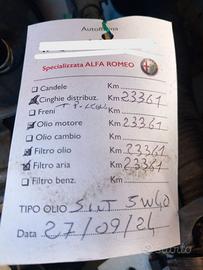 Autofficina
Specializzata ALFA ROMEO
Candele Km
Cinghie distribuz. Km 23361
Freni Km
Olio motore Km 23361
Olio cambio Km
Filtro olio Km 23361
Filtro aria Km 23361
Filtro benz. Km
TIPO OLIO SINT 5W40
Data 27/09/24
subito